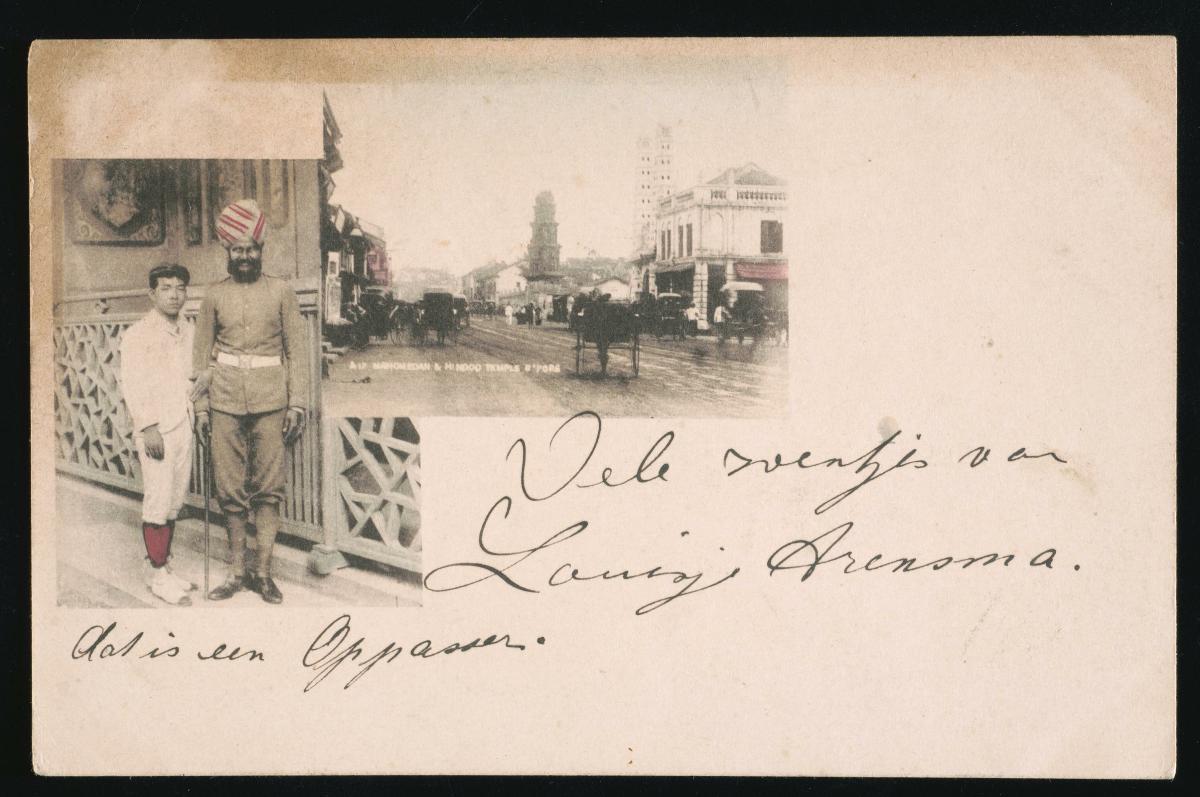 & 17 MAHOMEDAN & HINDOO TEMPLE S'PORE
Vele zoentjes van
Louisje Arensma.
dat is een Oppasser.